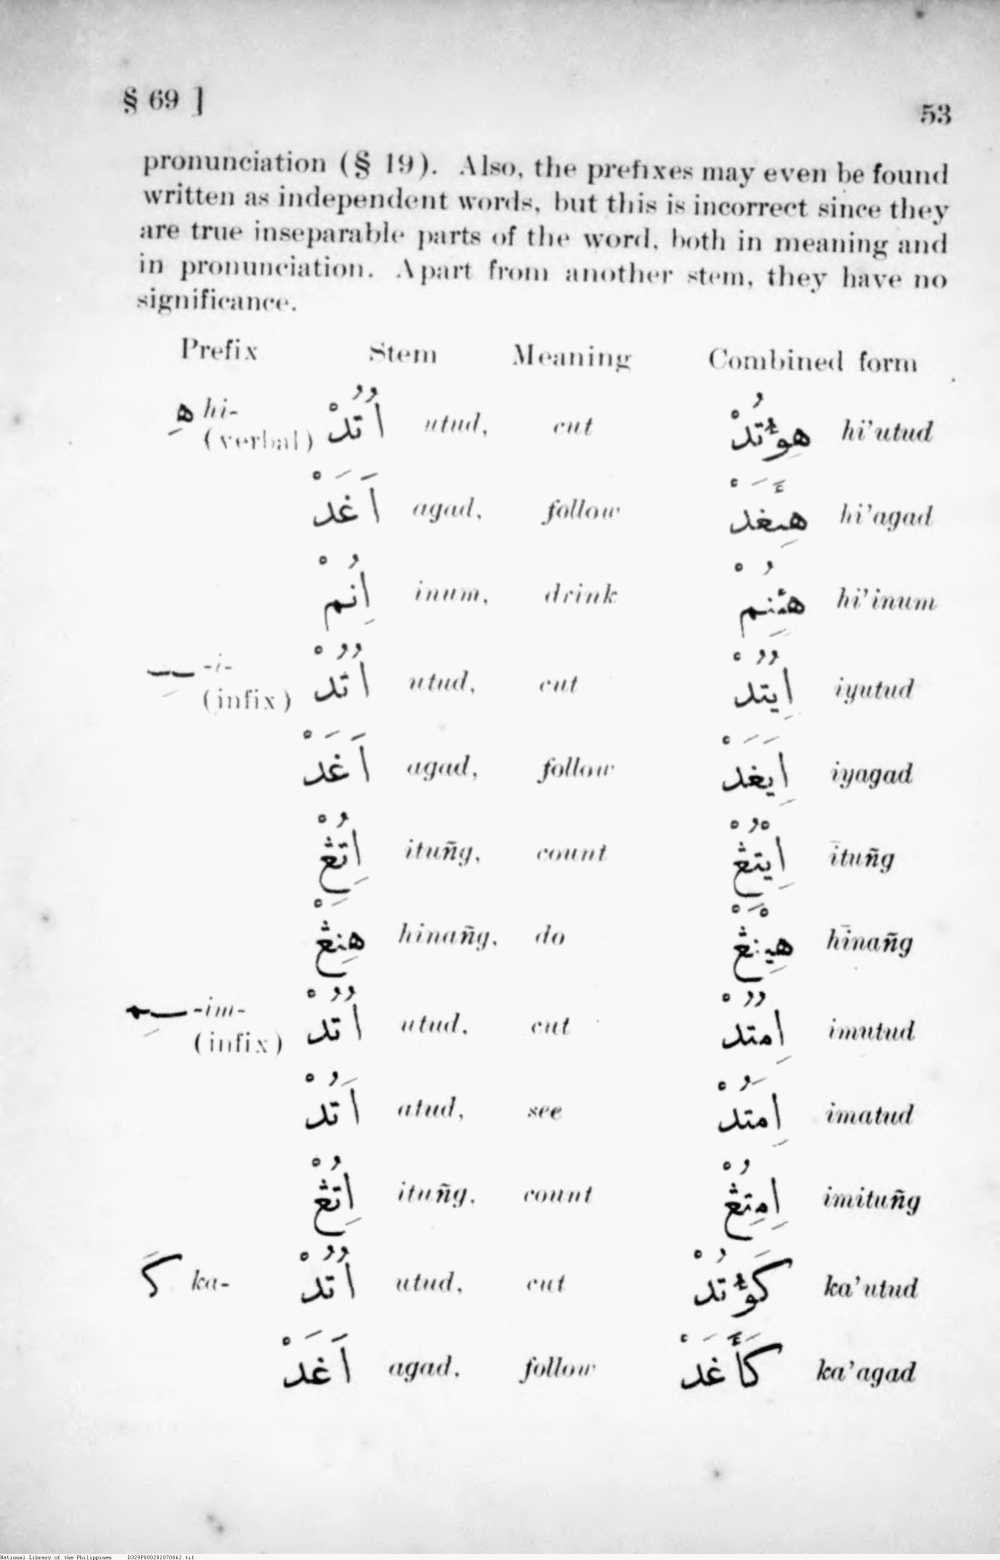 § 69 ]
53
pronunciation (§ 19). Also, the prefixes may even be found
written as independent words, but this is incorrect since they
are true inseparable parts of the word, both in meaning and
in pronunciation. Apart from another stem, they have no
significance.
Prefix Stem Meaning Combined form
هِ hi- (verbal) اُتُدْ utud, cut هِؤُتُدْ hi'utud
اَغَدْ agad, follow هِئَغَدْ hi'agad
اِنُمْ inum, drink هِئِنُمْ hi'inum
-i- (infix) اُتُدْ utud, cut اِيُتُدْ iyutud
اَغَدْ agad, follow اِيَغَدْ iyagad
اِتُڠْ ituñg, count اِيْتُڠْ ītuñg
هِنَڠْ hinañg, do هِيْنَڠْ hīnañg
-im- (infix) اُتُدْ utud, cut اِمُتُدْ imutud
اَتُدْ atud, see اِمَتُدْ imatud
اِتُڠْ ituñg, count اِمِتُڠْ imituñg
كَ ka- اُتُدْ utud, cut كَؤُتُدْ ka'utud
اَغَدْ agad, follow كَأَغَدْ ka'agad
National Library of the Philippines